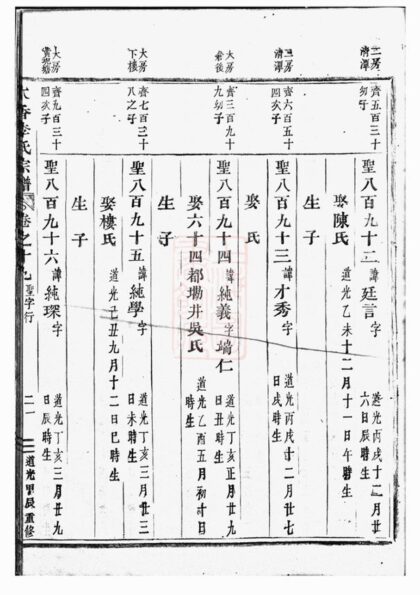 二房
清潭
齊五百三十
幼子
聖八百九十二 諱廷言 字 道光丙戌十二月廿
六日辰時生
娶陳氏 道光乙未十二月十一日午時生
生子
三房
清潭
齊六百五十
四次子
聖八百九十三 諱才秀 字 道光丙戌十二月廿七
日戌時生
娶 氏
生子
大房
後
齊三百九十
九幼子
聖八百九十四 諱純義 字端仁 道光丁亥正月廿八
日丑時生
娶六十四都塘井吳氏 道光乙酉五月初十日
時生
生子
大房
下樓
齊七百三十
八之子
聖八百九十五 諱純學 字 道光丁亥三月廿三
日未時生
娶樓氏 道光己丑九月十二日巳時生
生子
大房
齊九百三十
四次子
聖八百九十六 諱純琛 字 道光丁亥三月廿九
日辰時生
李氏宗譜 卷之十九 聖字行 二一 道光甲辰重修